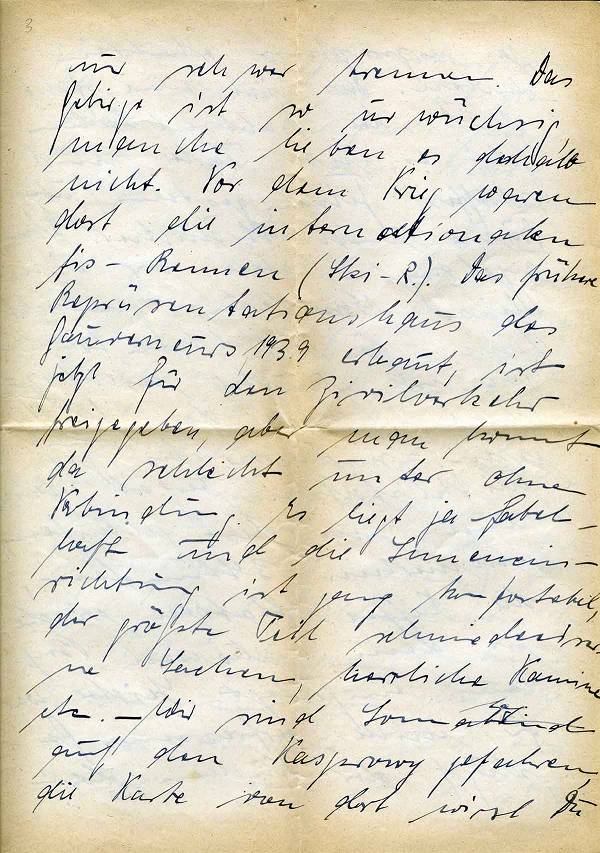 3
nur schwer trennen. Das
Gebirge ist so urwüchsig
manche lieben es deshalb
nicht. Vor dem Krieg waren
dort die internationalen
fis - Rennen (Ski-R.). Das frühere
Repräsentationshaus des
Gouverneurs 1939 erbaut, ist
jetzt für den Zivilverkehr
freigegeben, aber man kommt
da schlecht unter ohne
Verbindung. Es liegt ja fabel-
haft und die Innenein-
richtung ist ganz komfortabel,
der größte Teil schmiedeeiser-
ne Sachen, herrliche Kamine
etc. – Wir sind Sonn
auf den Kasprowy gefahren,
die Karte von dort wirst Du